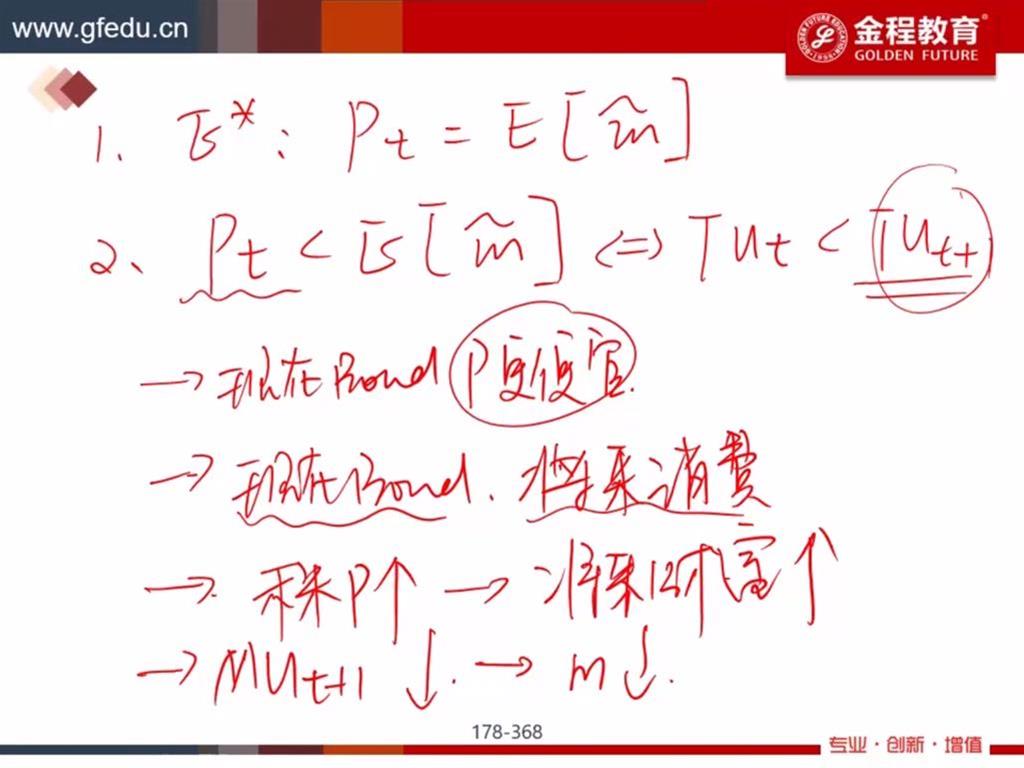 www.gfedu.cn
金程教育
GOLDEN FUTURE
1. E*: Pt = E[m̃]
2、 Pt < E[m̃] <=> TUt < TUt+
→ 现在Bond P更便宜.
→ 现在Bond. 将来消费
→ 未来P↑ → 将来财富↑
→ MUt+1 ↓. → m↓.
178-368
专业·创新·增值